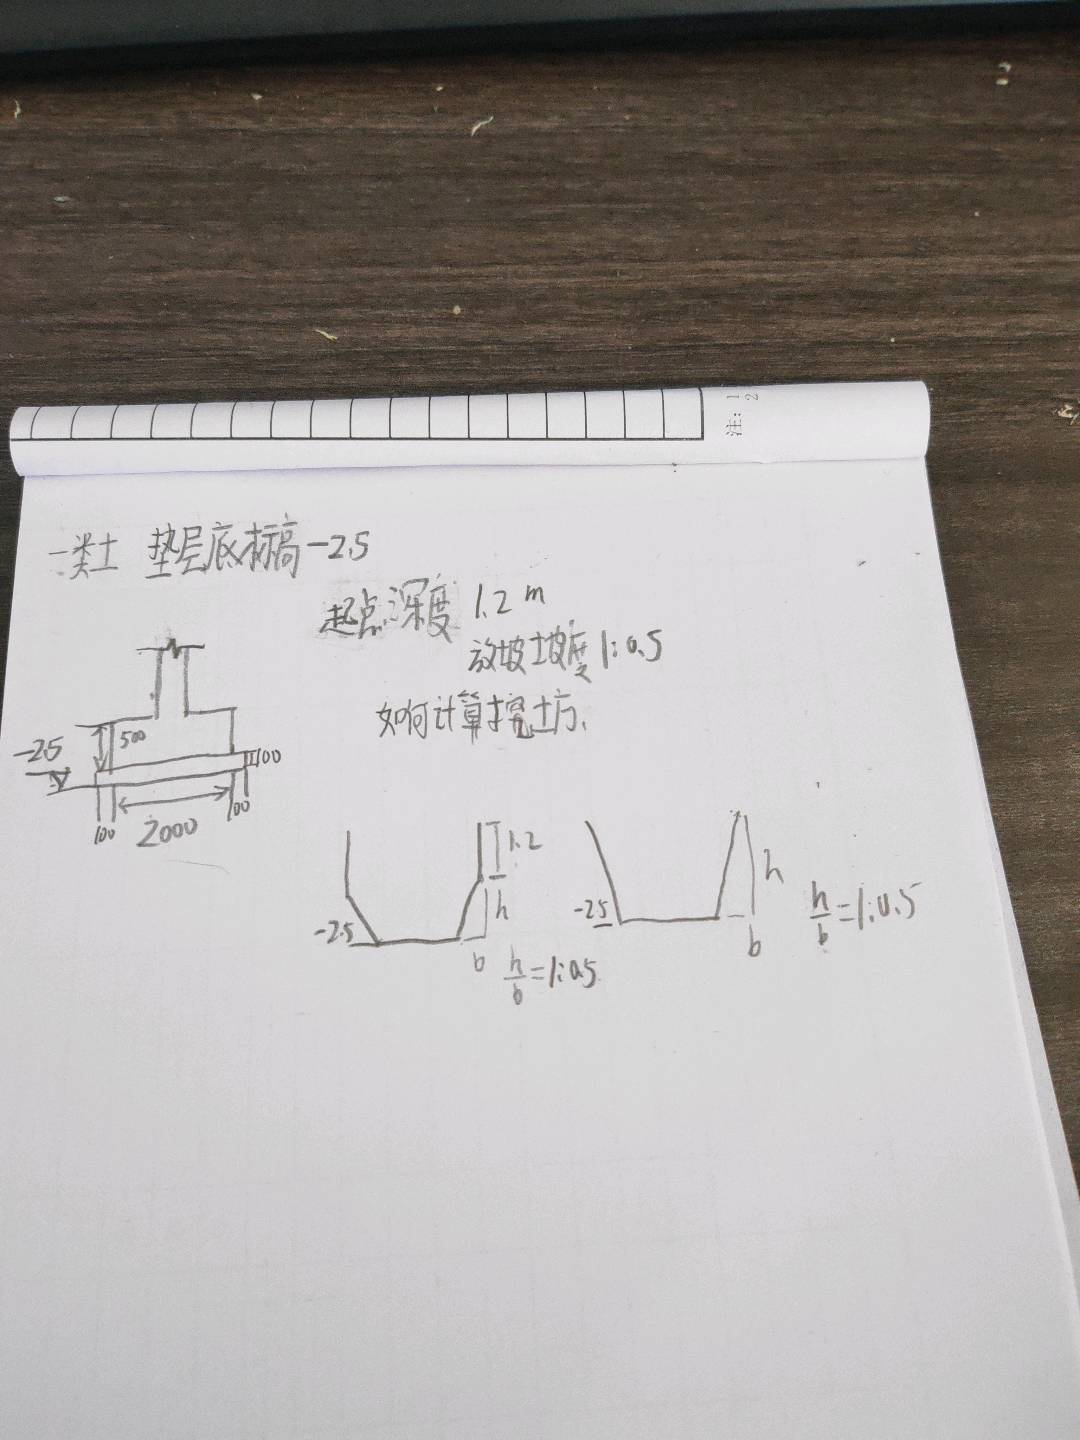 注：1
2
一类土 垫层底标高-2.5
起点深度 1.2m
放坡坡度1:0.5
如何计算挖土方、
-2.5
500
100
100
2000
100
1.2
h
-2.5
b
h/b=1:0.5
-2.5
h
b
h/b=1:0.5